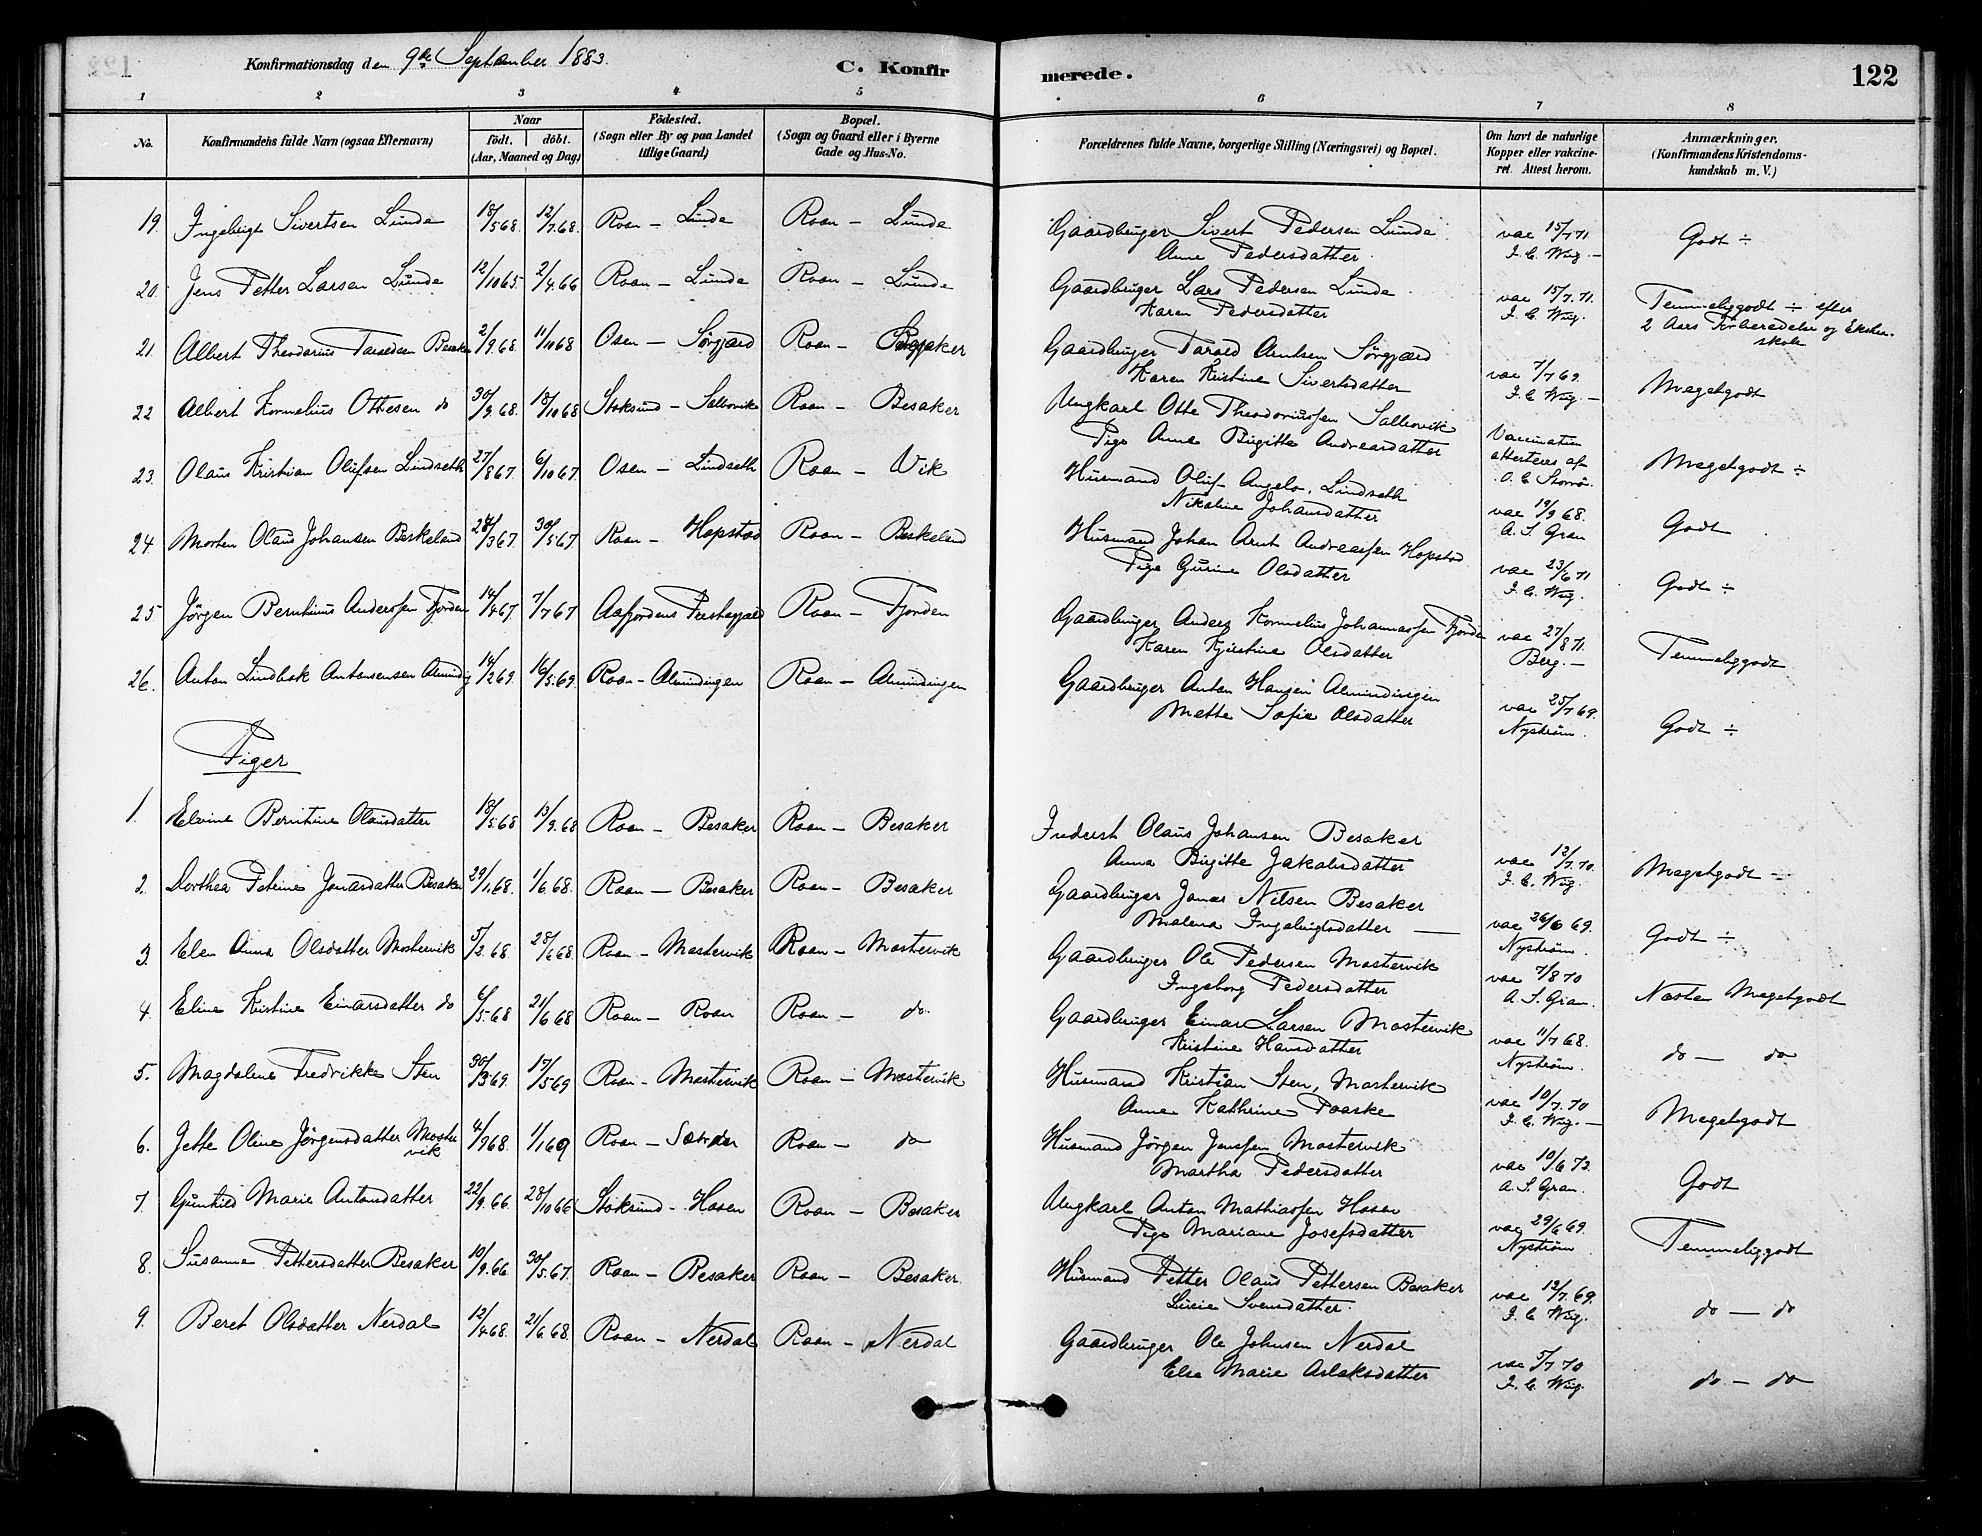 Konfirmationsdag den 9de September 1883.
C. Konfirmerede.
122
1 2 3 4 5 6 7 8
No. Konfirmandens fulde Navn (ogsaa Efternavn) Naar födt. döbt. (Aar, Maaned og Dag) Födested. (Sogn eller By og paa Landet tillige Gaard) Bopæl. (Sogn og Gaard eller i Byerne Gade og Hus-No. Forældrenes fulde Navne, borgerlige Stilling (Næringsvei) og Bopæl. Om havt de naturlige Kopper eller vakcineret. Attest herom. Anmærkninger. (Konfirmandens Kristendomskundskab m. V.)
19. Ingebrigt Sivertsen Lunde 18/5 68. 12/7 68. Roan – Lunde Roan – Lunde Gaardbruger Sivert Pedersen Lunde vac 15/7 71 Godt ÷
Anne Pedersdatter. I. C. Wiig. –
20. Jens Petter Larsen Lunde 12/10 65. 2/4 66 Roan – Lunde Roan – Lunde Gaardbruger Lars Pedersen Lunde vac 15/7 71. Temmeliggodt ÷ efter
Karen Pedersdatter I. C. Wiig. 2 Aars Forberedelse og
skole
21. Albert Theodorius Besaker 2/9 68. 11/10 68 Osen – Sörgjærd Roan – Besaker Gaardbruger Tarald Arntsen Sörgjærd vac 7/7 69. Megetgodt
Karen Kristine Sivertsdatter I. C. Wiig. –
22 Albert Kornelius Ottesen do 30/9 68. 18/10 68 Stoksund – Sallovik Roan – Besaker Ungkarl Otte Theodoriussen Sallovik Vaccination
Pige Anne Birgitte Andreasdatter attesteres af
23. Olaus Kristian Olufsen Lindseth 27/8 67 6/10 67. Osen – Lindseth Roan – Vik Husmand Oluf Angelo. Lindseth O. C. Storrö. Megetgodt ÷
Nikoline Johansdatter vac 19/9 68.
24 Morten Olaus Johansen Beskeland 28/3 67. 30/5 67 Roan – Hopstad Roan – Beskeland Husmand Johan Arnt Andreassen Hopstad A. S. Gran Godt
Pige Gurine Olsdatter vac 23/6 71
I. C. Wiig. Godt ÷
25. Jörgen Bernhinus Anderssen Fjorden 14/4 67 7/7 67 Aafjordens Præstegjæld Roan – Fjorden Gaardbruger Anders Kornelius Johannassen Fjorden vac 27/8 71. Temmeliggodt
Karen Kjirstine Olsdatter Berg. –
26. Anton Lindbak Antonsensen Almindg 14/2 69. 16/5 69. Roan – Almindingen Roan – Almindingen Gaardbruger Anton Hansen Almindingen vac 25/7 69. Godt ÷
Mette Sofie Olsdatter Nyström.
Piger
1. Elvine Berntine Olausdatter 18/5 68 13/9 68 Roan – Besaker Roan – Besaker Inderst Olaus Johansen Besaker vac 12/7 70. Megetgodt –
Anna Birgitte Jakobsdatter I. C. Wiig.
2. Dorthea Petrine Jonasdatter Besaker 29/1 68. 1/6 68. Roan – Besaker Roan – Besaker Gaardbruger Jonas Nilsen Besaker vac 26/6 69. Godt ÷
Malena Ingebrigtsdatter — Nyström.
3. Elen Anna Olsdatter Mostervik 5/2 68. 28/6 68. Roan – Mostervik Roan – Mostervik Gaardbruger Ole Pedersen Mostervik vac 7/8 70 Næsten Megetgodt
Ingeborg Pedersdatter A. S. Gran.
4. Eline Kristine Einarsdatter do 6/5 68 21/6 68 Roan – Roan Roan – do Gaardbruger Einar Larsen Mostervik vac 11/7 68. do – do
Kristine Hansdatter Nyström.
5. Magdalene Fredrikke Sten 30/3 69. 17/5 69 Roan – Mostervik Roan – Mostervik Husmand Kristian Sten, Mostervik vac 10/7 70 Megetgodt
Anne Kathrine Paaske I. C. Wiig. –
6. Jette Oline Jörgensdatter Mostervik 4/9 68. 1/1 69 Roan – Roan – do Husmand Jörgen Jenssen Mostervik vac 10/6 73. Godt
Martha Pedersdatter A. S. Gran.
7. Gunhild Marie Antonsdatter 22/9 66. 28/10 66 Stoksund – Hosen Roan – Besaker Ungkarl Anton Mathiassen Hosen vac 29/6 69. Temmeliggodt
Pige Mariane Josefsdatter Nyström
8. Susanne Pettersdatter Besaker 10/9 66. 30/5 67. Roan – Besaker Roan – Besaker. Husmand Petter Olaus Pettersen Besaker vac 12/7 69. do – do
Lucie Svensdatter. I. C. Wiig.
9. Beret Olsdatter Nerdal 12/4 68. 21/6 68. Roan – Nerdal Roan – Nerdal Gaardbruger Ole Johnsen Nerdal vac 5/7 70 do – do
Else Marie Aslaksdatter I. C. Wiig.